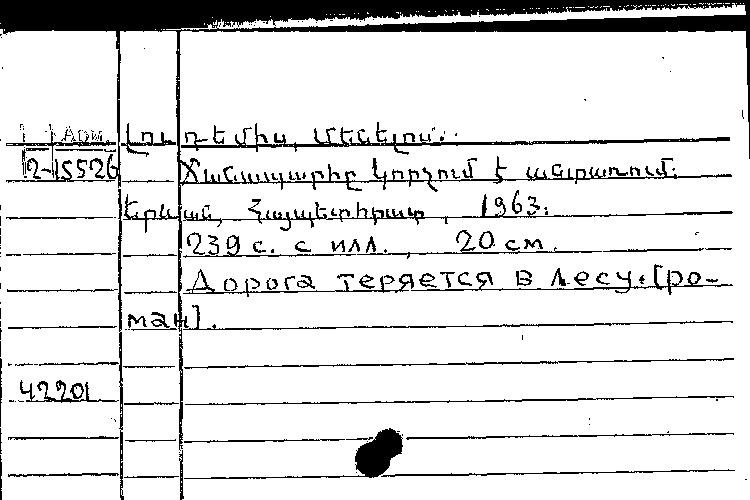 Арм. Լու դեմիս, Մենելոս..
2-15526 Ճանապարհը կորչում է անտառում:
Երևան, Հայպետհրատ, 1963:
239 с. с илл., 20 см.
Дорога теряется в лесу.[ро-
ман].
42201